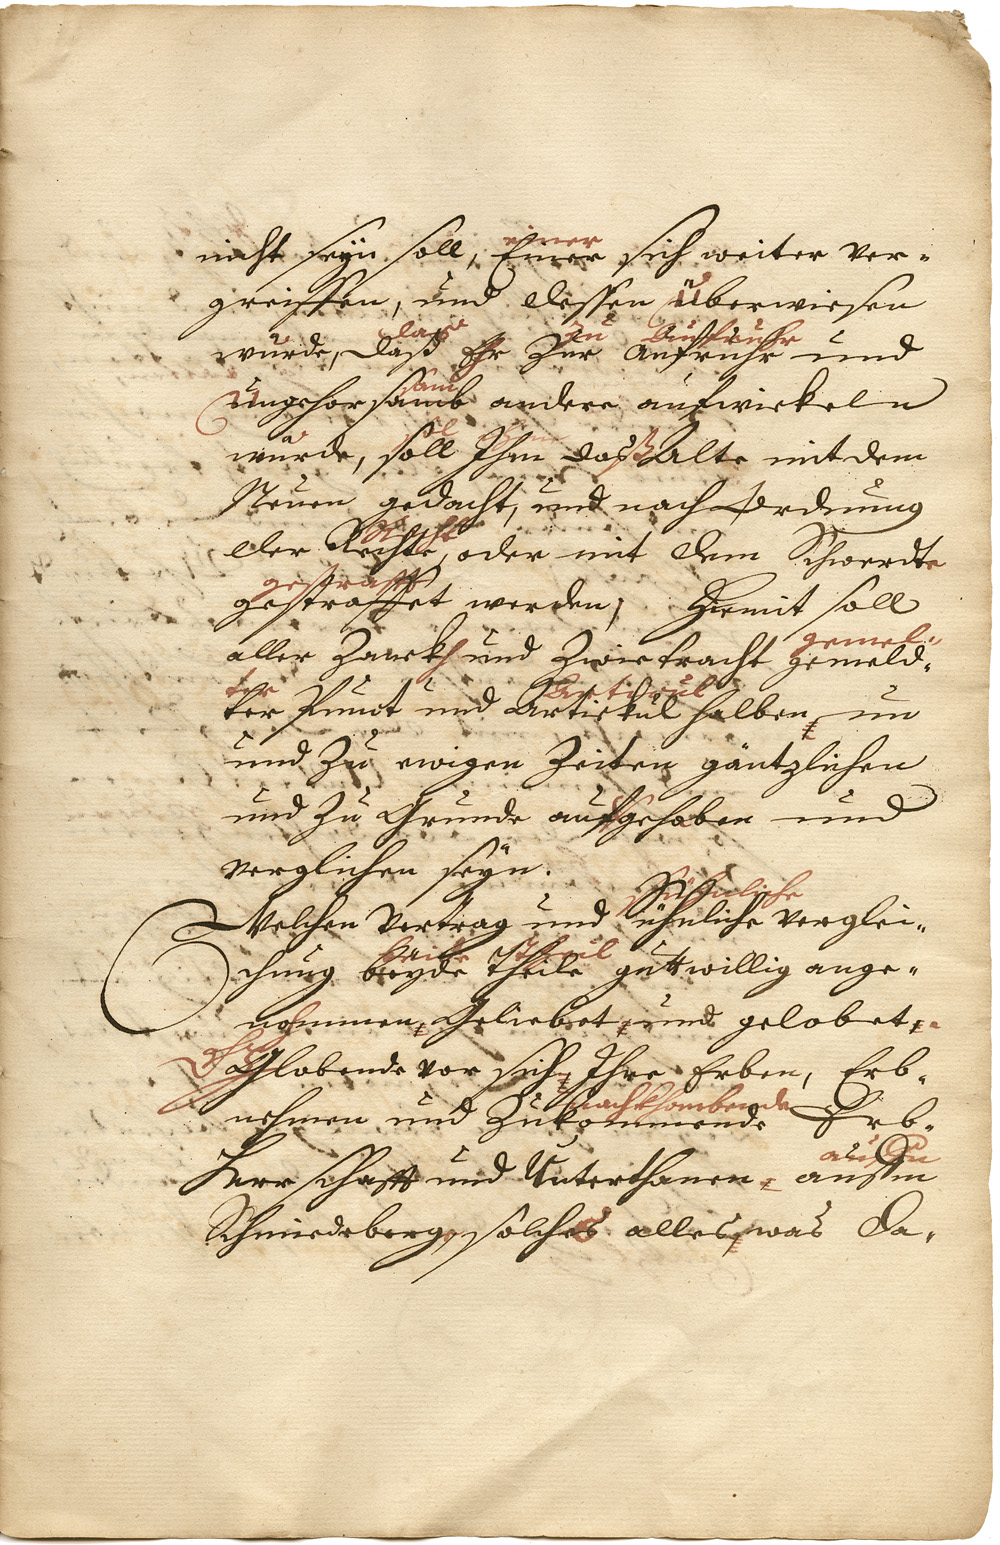 einer
nicht seyn soll, Einer sich weiter ver-
greiffen, und dessen überwiesen
das zu Auffruhr
wurde, daß Ehr Zur Aufruhr und
sam
Ungehorsamb andere aufwickeln
würde, soll Ihm daß Alte mit dem
Neuen gedacht, und nach Ordnung
Recht
der Rechte, oder mit dem Schwerdte
gestrafft
gestraffet werden; Hiemit soll
gemel-
aller Zanckh und Zwietracht gemeld-
ter Articul
ter Punct und Artickul halben, nu
und Zu ewigen Zeiten gäntzlichen
und Zu Grunde auffgehoben und
verglichen seyn.
Sühnliche
Welchen Vertrag und ühnliche verglei-
beide theil
chung beyde theile guttwillig ange-
nohmmen, Geliebet, und gelobet,
Globende vor sich, Ihre Erben, Erb-
nachkhombende
nehmen und Zukommende Erb-
auffm
Herrschafft und Unterthanen, aufm
Schmiedeberg, solches alles, was da-